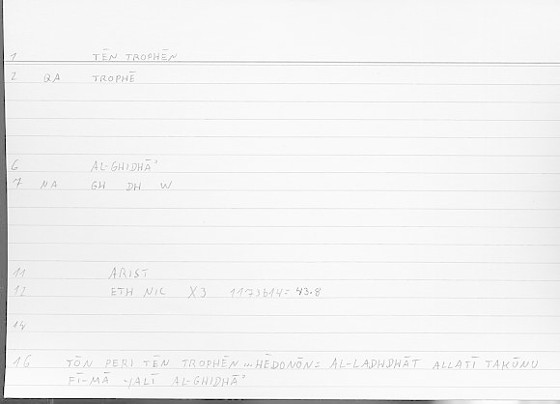 1 TĒN TROPHĒN
2 QA TROPHĒ
6 AL-GHIDHĀʾ
7 NA GH DH W
11 ARIST
12 ETH NIC X3 1173b14 = 43.8
14
16 TŌN PERI TĒN TROPHĒN ... HĒDONŌN = AL-LADHDHĀT ALLATĪ TAKŪNU
FĪ-MĀ YALĪ AL-GHIDHĀʾ